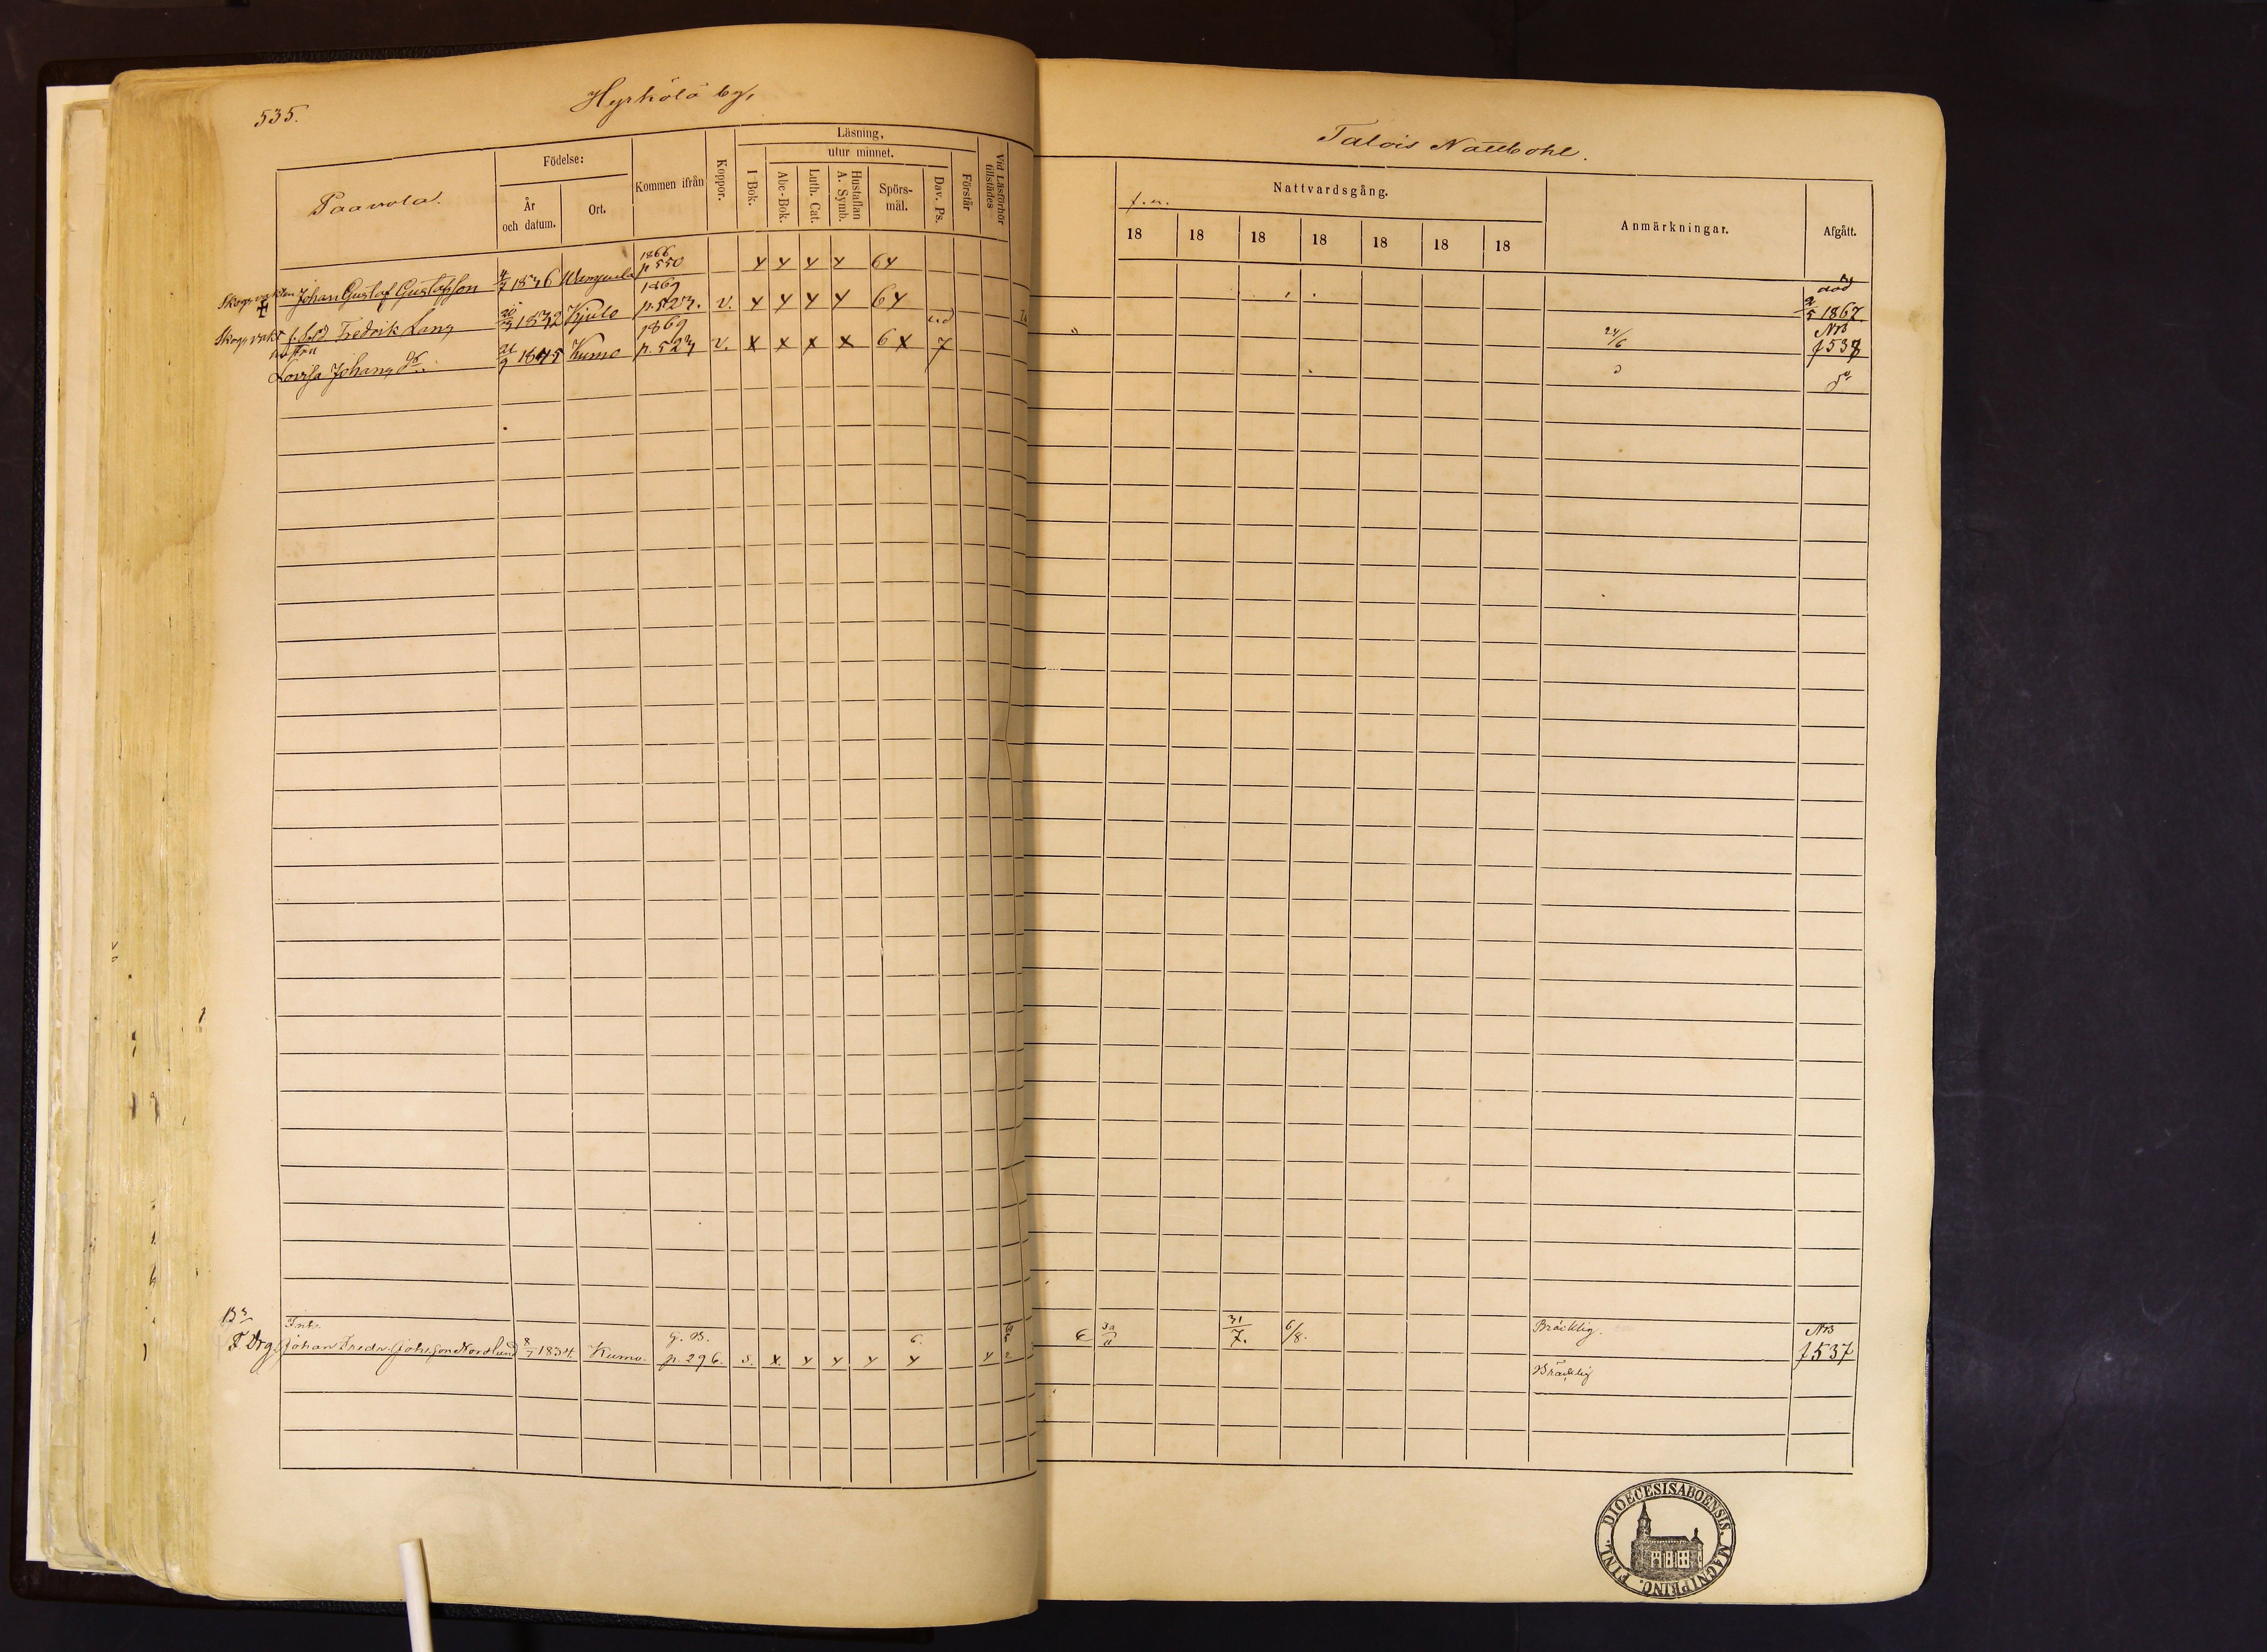 535.
Hyrhölä by,
Paavola.
Födelse:
År
och datum.
Ort.
Kommen ifrån
Koppor.
Läsning,
I Bok.
utur minnet.
Abc-Bok.
Luth. Cat.
Hustaflan
A. Symb.
Spörs-
mål.
Dav. Ps.
Förstår
Vid Läsförhör
tillstädes
Skogsvakten Johan Gustaf Gustafsson 4/7 1836 1866 p 550 y y y y 6 y
Skogsvakt f. Sold. Fredrik Lang 1832 Kjulo 1869 p. 523. v. y y y y 6 y
hustru
Lovisa Johans dr. 21/9 1845 Kumo 1869 p. 523 v. x x x x 6 x 7
133
Inh.
F. Drg. Johan Fredr. Johnson Nordlund 8/7 1834. Kumo. p. 296. s. x. y y y 6. y y
Talois Nattbohl.
Nattvardsgång.
18 18 18 18 18 18 18
Anmärkningar.
Afgått.
död
2/5 1867
24/6 NB
f 538
do
31/7. 6/8. Bräcklig. NB
f 537
Bräcklig
DIOECESIS ABOENSIS. MAGNI PRINC. FINL.